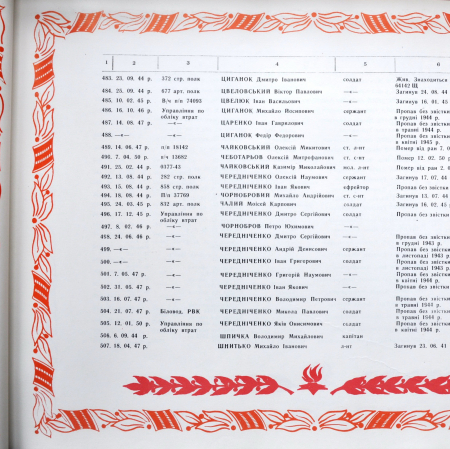 1 2 3 4 5 6
483. 25. 09. 44 р. 372 стр. полк ЦИГАНОК Дмитро Іванович солдат Жив. Знаходиться
64142 Щ
484. 25. 09. 44 р. 877 арт. полк ЦВЕЛОВСЬКИЙ Віктор Павлович —«— Загинув 24. 08. 44
485. 10. 02. 45 р. В/ч п/п 74093 ЦВЕЛЮК Іван Васильович —«— Загинув 16. 01. 45
486. 16. 10. 46 р. Управління по ЦИГАНОК Михайло Йосипович сержант Пропав без звістки
обліку втрат в грудні 1944 р.
487. 14. 08. 47 р. ЦАРЕНКО Іван Гаврилович солдат Пропав без звістки
в травні 1944 р.
488. —«— —«— ЦИГАНОК Федір Федорович —«— Пропав без звістки
в квітні 1945 р.
489. 14. 06. 47 р. п/п 18142 ЧАЙКОВСЬКИЙ Олексій Микитович ст. л-нт Помер від ран 7. 0
490. 7. 04. 50 р. в/ч 13682 ЧЕБОТАРЬОВ Олексій Митрофанович ст. с-нт Помер 12. 02. 50 р
491. 25. 02. 44 р. 0377-43 ЧАЙКОВСЬКИЙ Казимір Миколайович мол. л-нт Помер від ран 2. 0
492. 13. 08. 44 р. 282 стр. полк ЧЕРЕДНІЧЕНКО Олексій Наумович сержант Загинув 17. 07. 44
493. 15. 08. 44 р. 858 стр. полк ЧЕРЕДНІЧЕНКО Іван Якович єфрейтор Пропав без звістки
494. 18. 08. 44 р. П/п 37769 ЧОРНОБРОВИЙ Михайло Андрійович ст. с-нт Загинув 13. 07. 44
495. 24. 03. 45 р. 832 арт. полк ЧАЛИЙ Моісей Карпович солдат Загинув 16. 02. 45
496. 17. 12. 45 р. Управління по ЧЕРЕДНІЧЕНКО Дмитро Сергійович солдат Пропав без звістки
обліку втрат
497. 8. 02. 46 р. —«— ЧОРНОБРОВ Петро Юхимович —«—
498. 24. 06. 46 р. —«— ЧЕРЕДНІЧЕНКО Дмитро Сергійович —«— Пропав без звістки
в грудні 1943 р.
499. —«— —«— ЧЕРЕДНІЧЕНКО Андрій Денисович сержант Пропав без звістки
в листопаді 1943 р.
500. —«— —«— ЧЕРЕДНІЧЕНКО Іван Григорович солдат Пропав без звістки
в листопаді 1943 р.
501. 7. 05. 47 р. —«— ЧЕРЕДНІЧЕНКО Григорій Наумович —«— Пропав без звістки
в квітні 1944 р.
502. 31. 05. 47 р. —«— ЧЕРЕДНІЧЕНКО Іван Якович —«— Пропав без звістки
503. 16. 07. 47 р. —«— ЧЕРЕДНІЧЕНКО Володимир Петрович сержант Пропав без звістки
в травні 1944 р.
504. 21. 07. 47 р. Біловод. РВК ЧЕРЕДНІЧЕНКО Микола Павлович солдат Пропав без звістки
в травні 1944 р.
505. 12. 01. 50 р. Управління по ЧЕРЕДНІЧЕНКО Яків Онисимович солдат Пропав без звістки
обліку втрат в квітні 1944 р.
506. 6. 09. 44 р. ШПИЧКА Володимир Михайлович капітан
507. 18. 04. 47 р. ШНИТЬКО Михайло Іванович л-нт Загинув 23. 06. 41